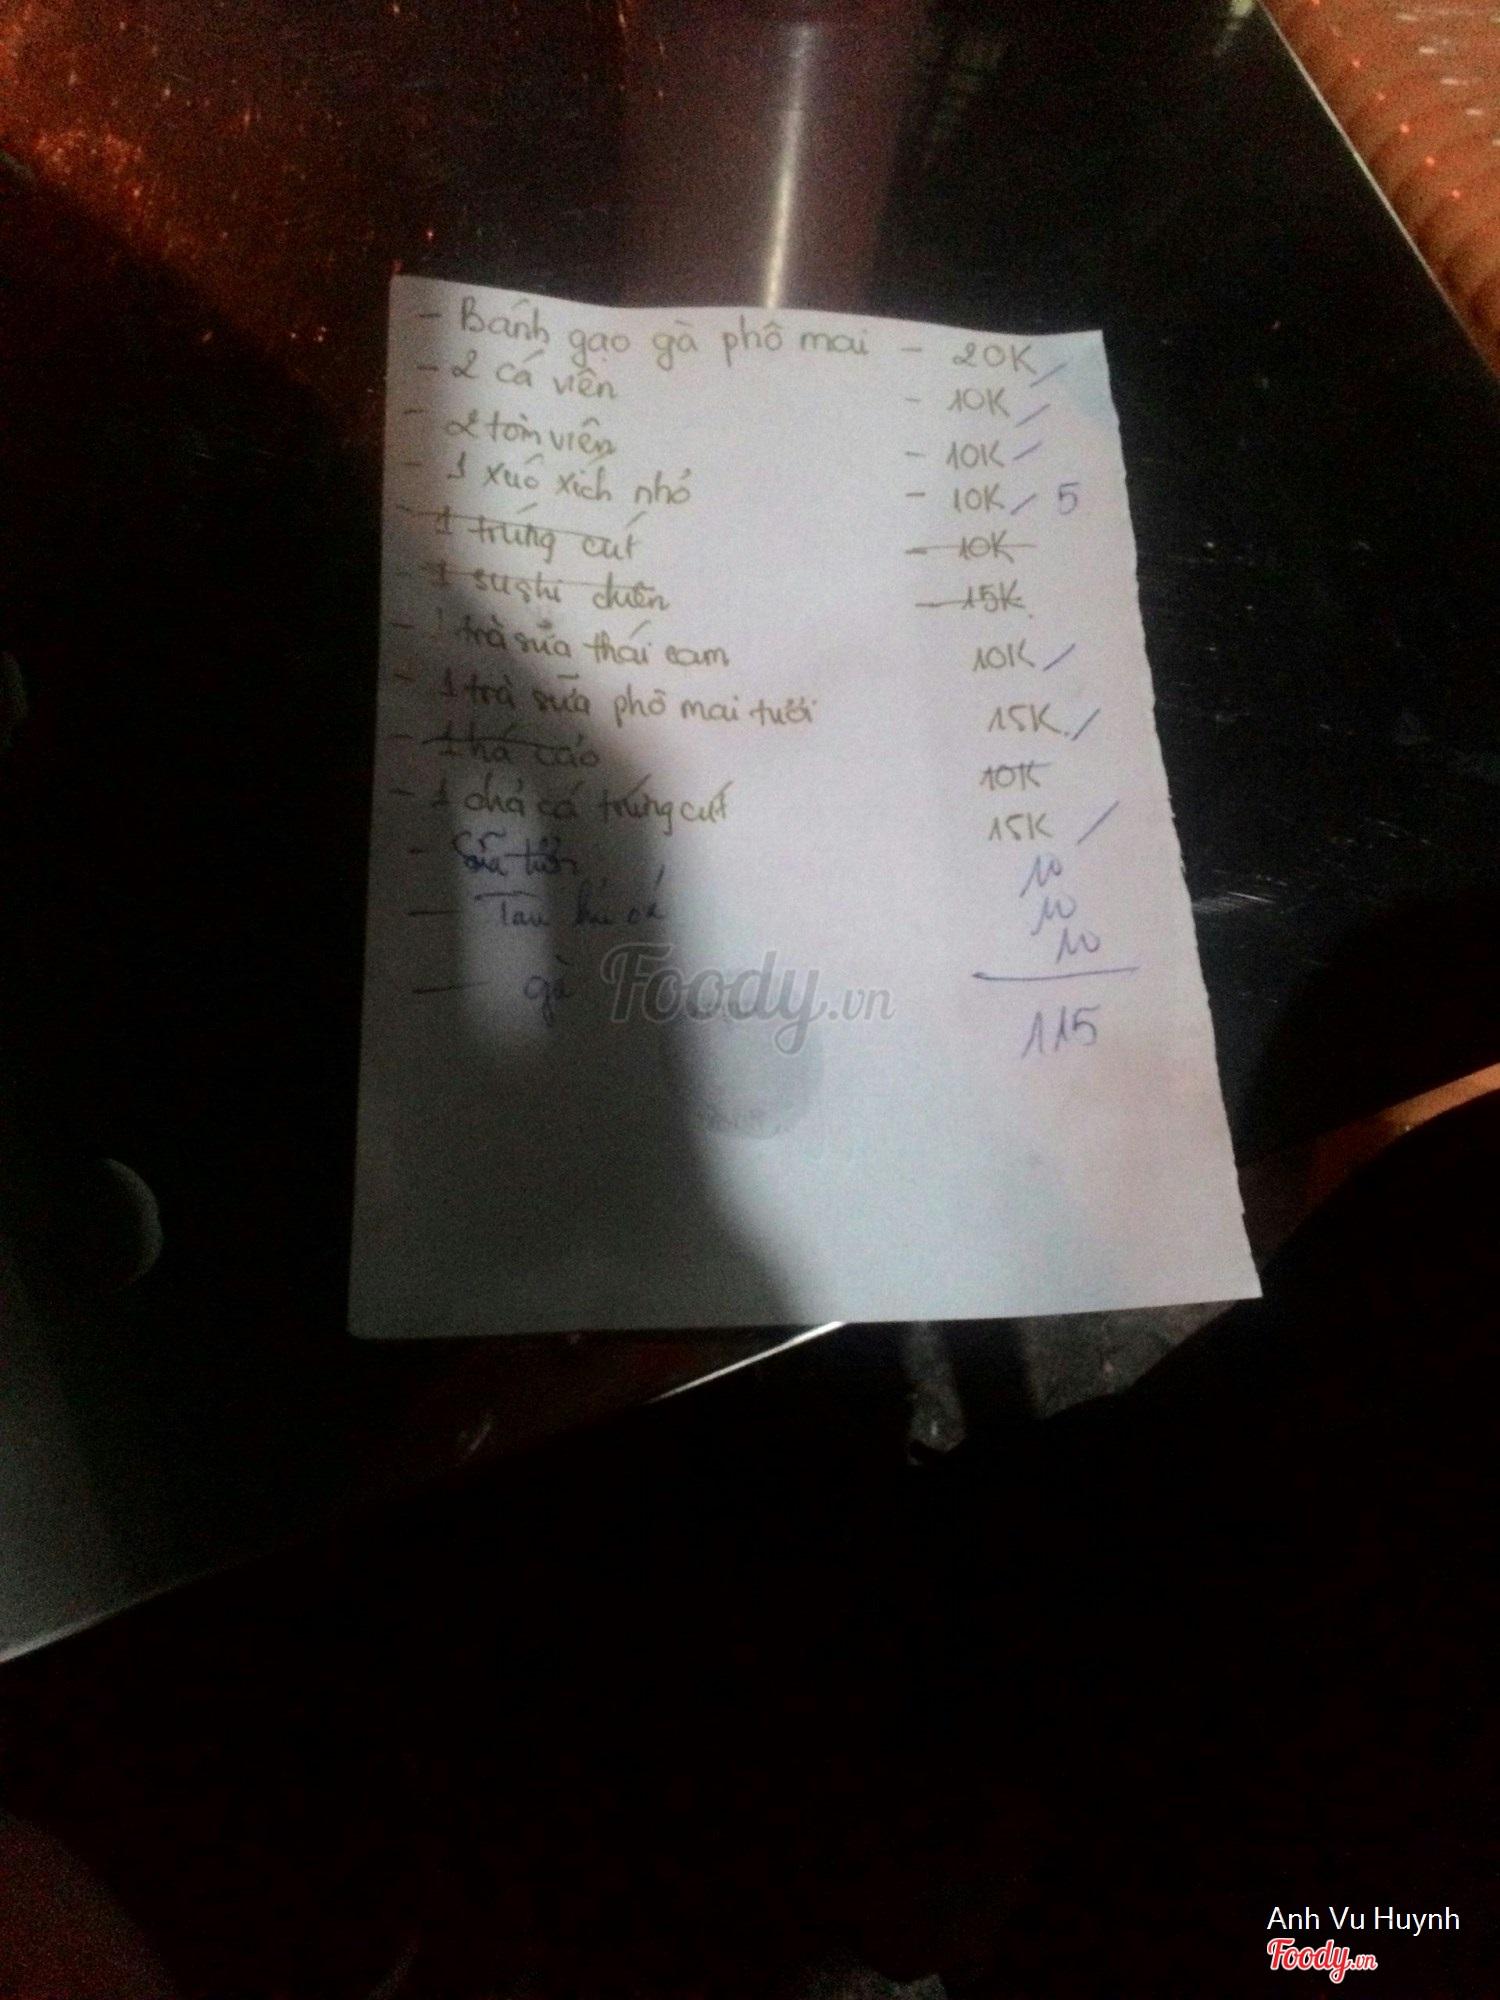 - Bánh gạo gà phô mai - 20K /
- 2 cá viên - 10K /
- 2 tòm viên - 10K /
- 1 xuó xích nhỏ - 10K / 5
- 1 trứng cút - 10K
- 1 sushi chiên - 15K
- 1 trà sữa thái cam 10K /
- 1 trà sữa phô mai tười 15K /
- 1 há cảo 10K
- 1 chả cá trứng cút 15K /
- Sữa tươi 10
- Tau hủ 10
10
- gà
115
Foody.vn
Anh Vu Huynh
Foody.vn